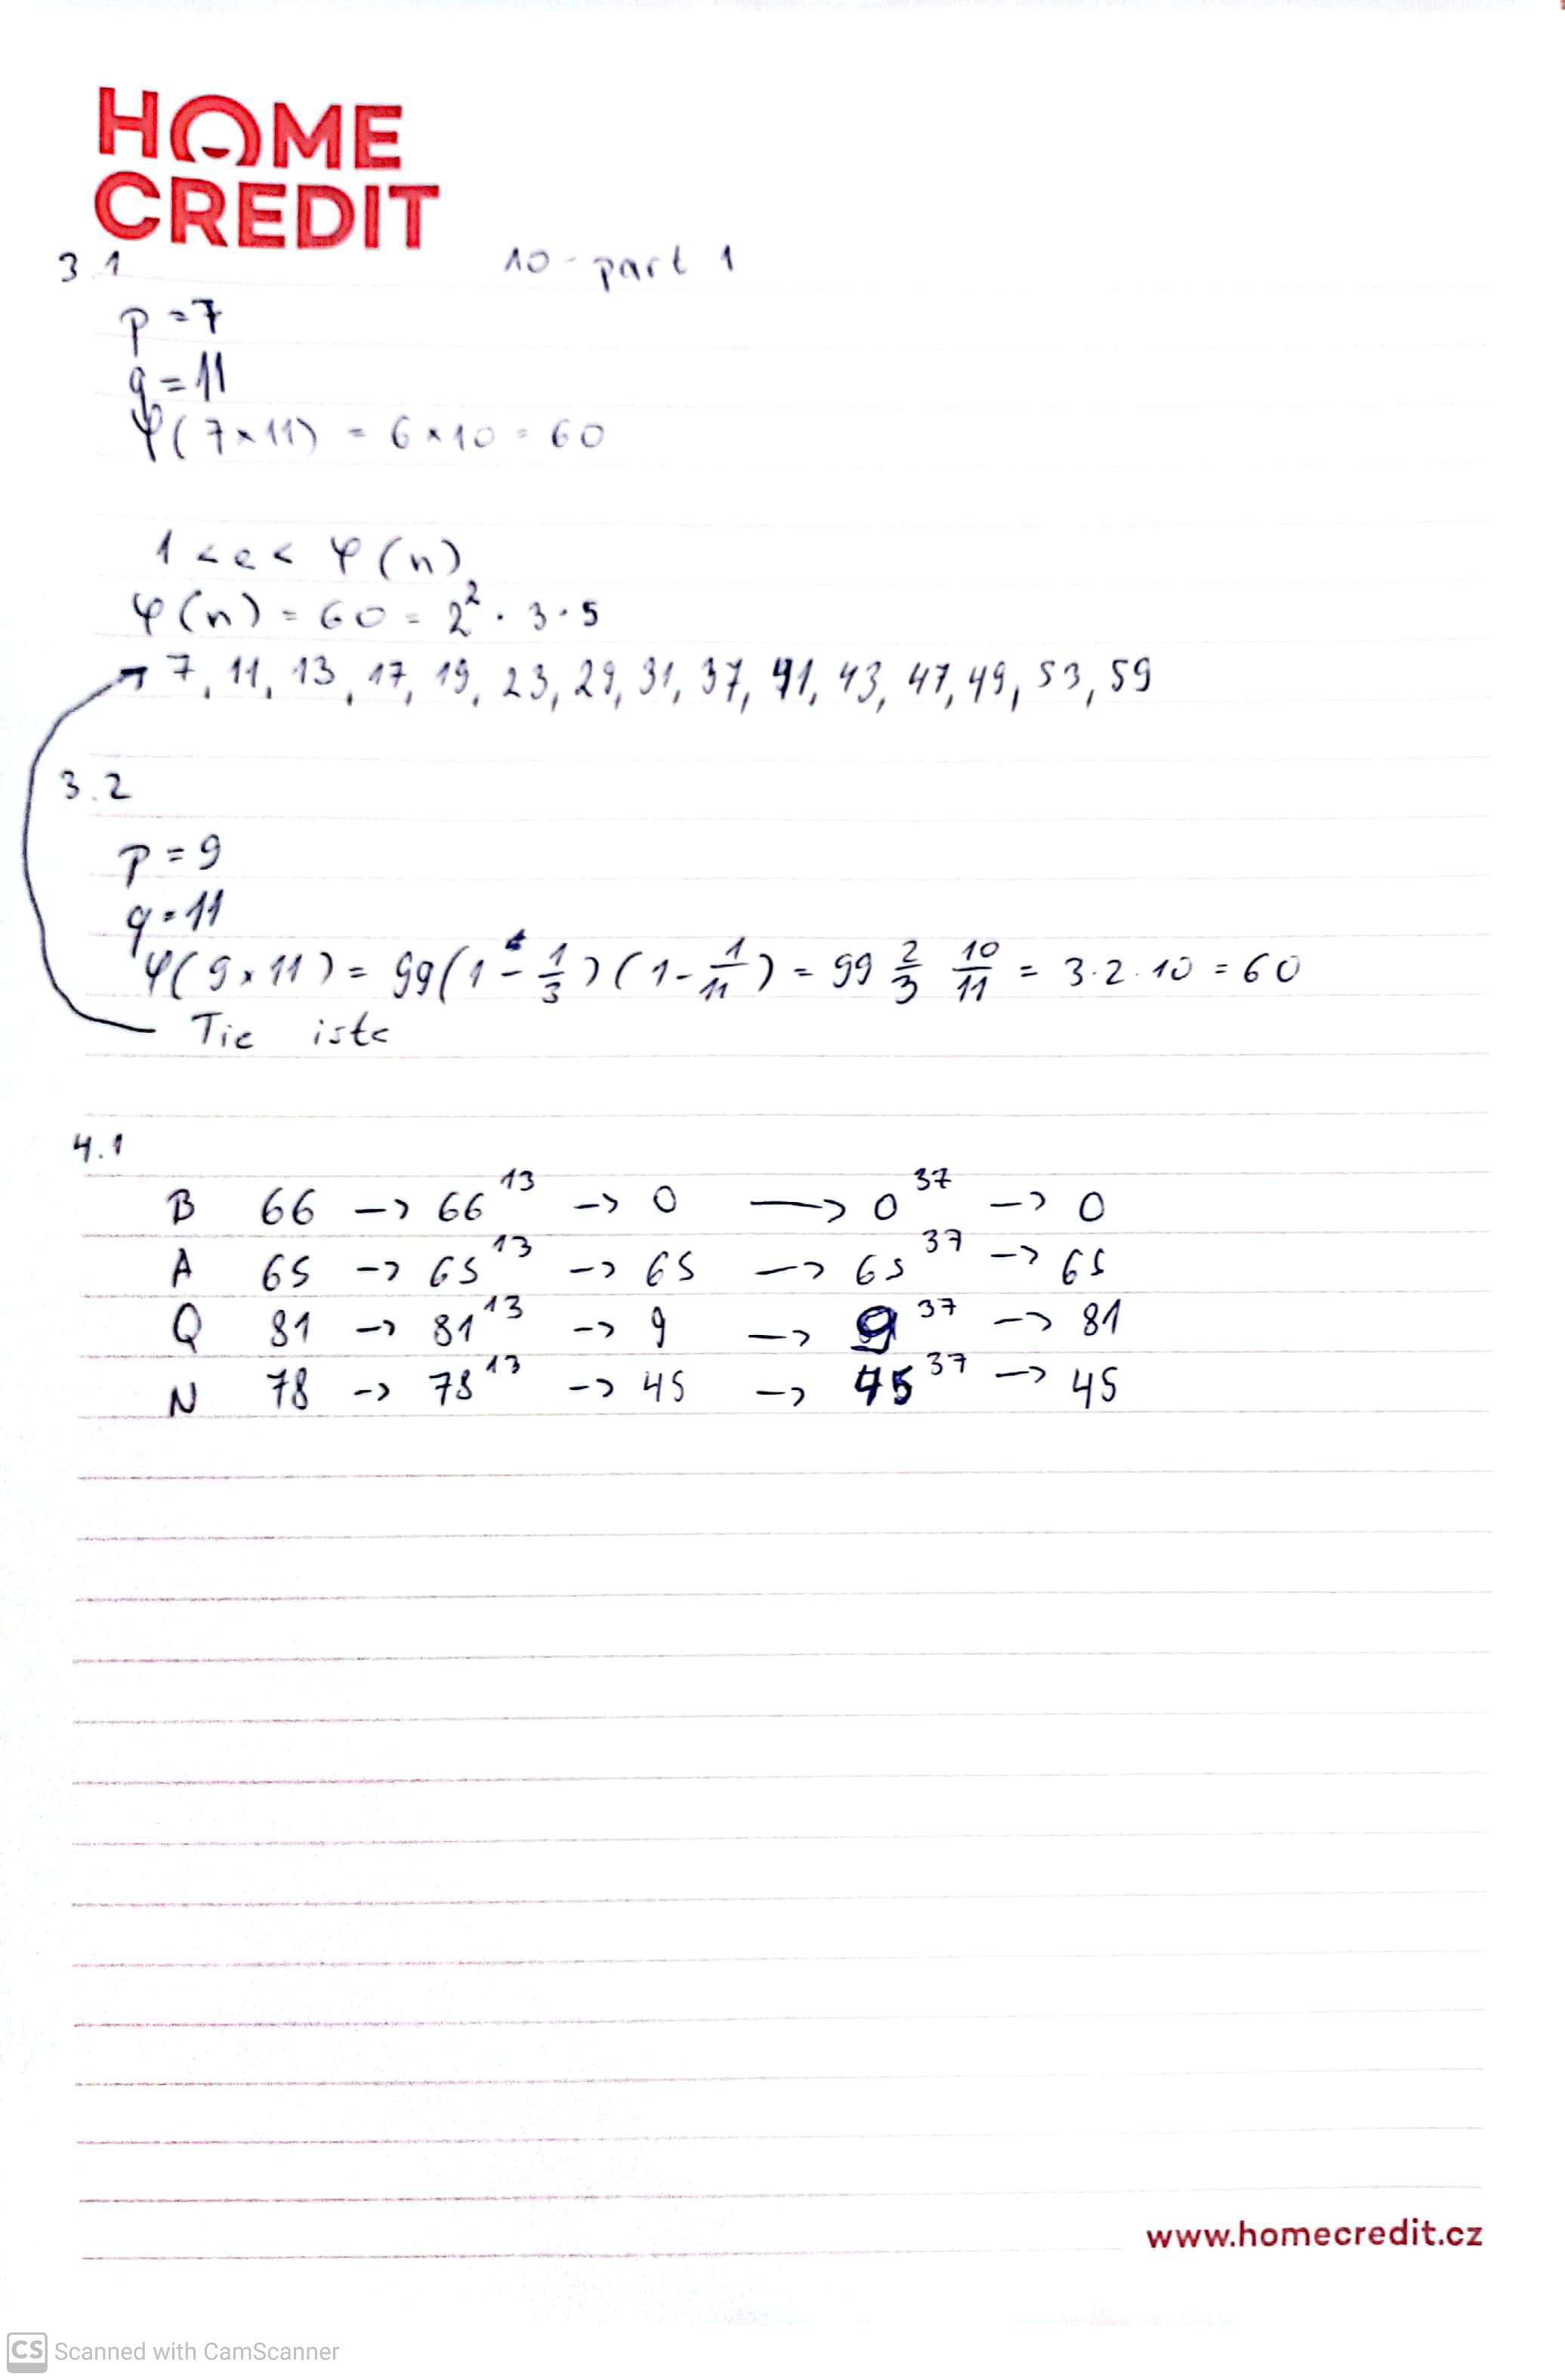 HOME
CREDIT
10 - part 1
3.1
p = 7
q = 11
φ(7×11) = 6×10 = 60
1 < e < φ(n)
φ(n) = 60 = 2² · 3 · 5
→ 7, 11, 13, 17, 19, 23, 29, 31, 37, 41, 43, 47, 49, 53, 59
3.2
p = 9
q = 11
φ(9×11) = 99(1 - 1/3)(1 - 1/11) = 99 2/3 10/11 = 3·2·10 = 60
Tie iste
4.1
B 66 → 66¹³ → 0 → 0³⁷ → 0
A 65 → 65¹³ → 65 → 65³⁷ → 65
Q 81 → 81¹³ → 9 → 9³⁷ → 81
N 78 → 78¹³ → 45 → 45³⁷ → 45
www.homecredit.cz
CS Scanned with CamScanner